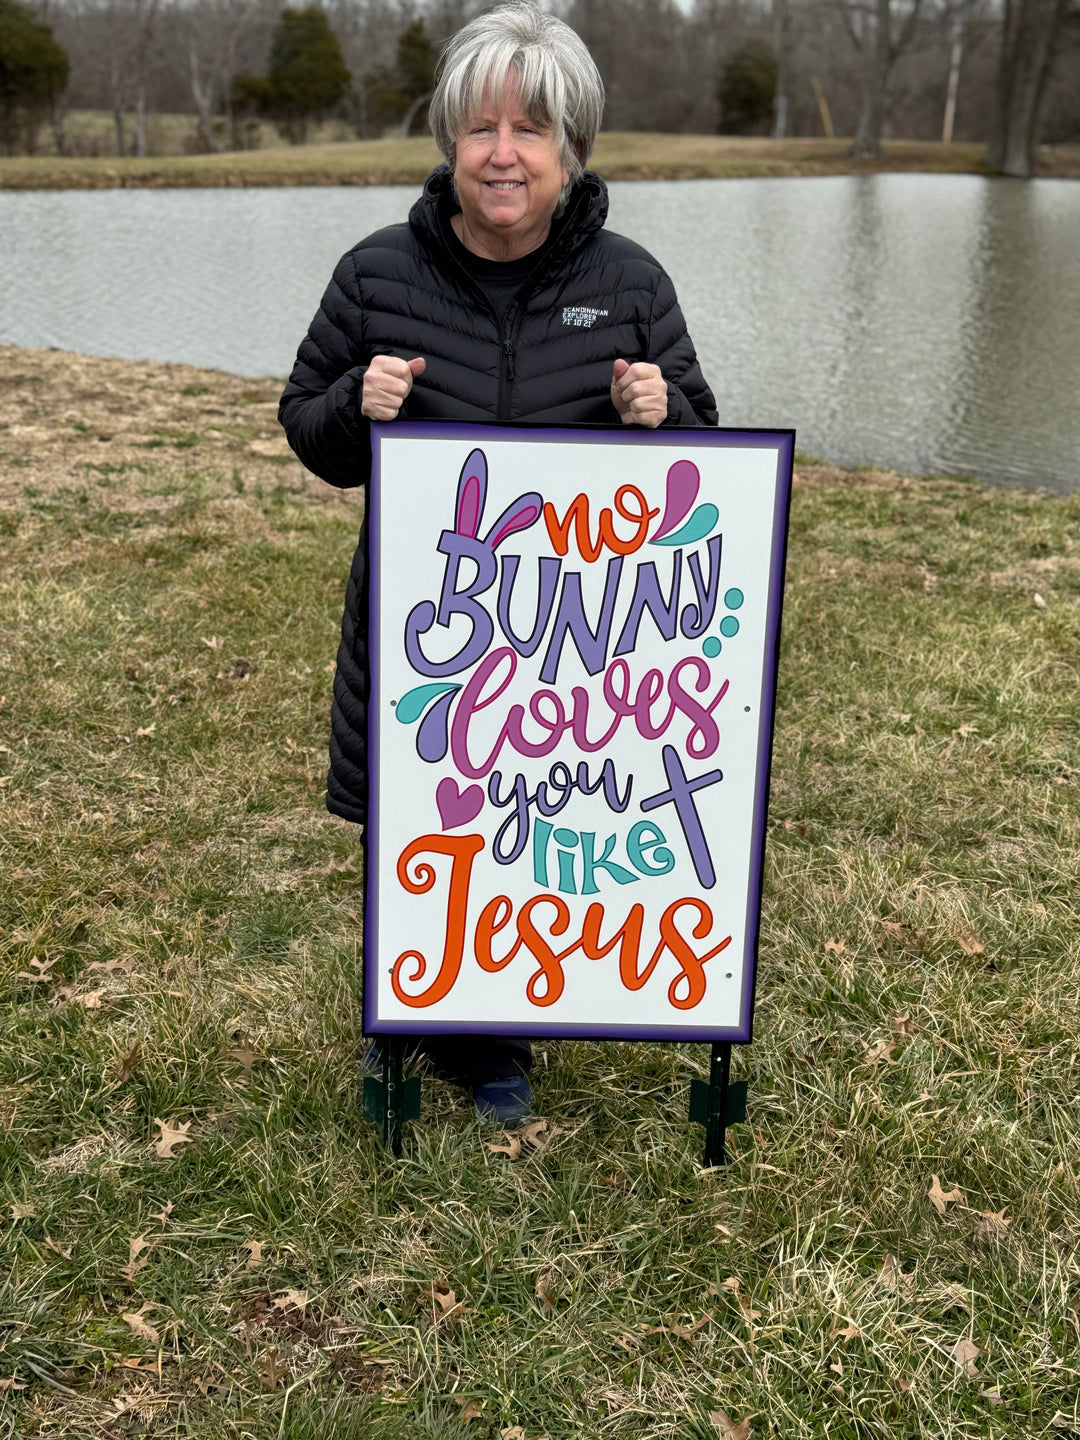 SCANDINAVIAN
EXPLORER
71°10'21"
no
BUNNY
loves
you
like
Jesus